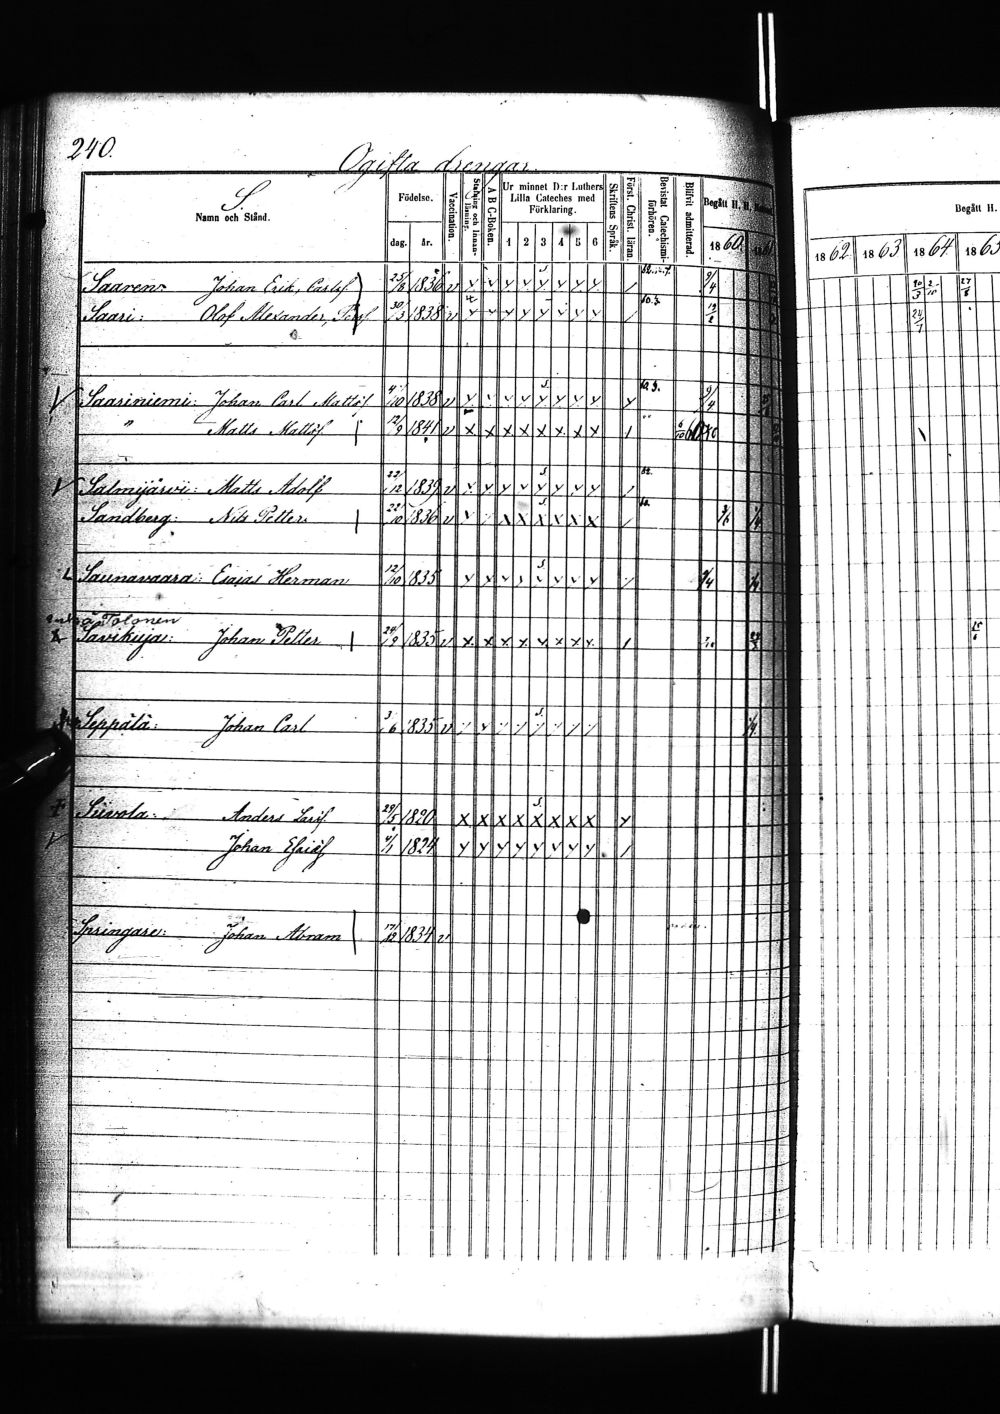 240.
Ogifta drengar.
S.
Namn och Stånd.
Födelse.
dag. år.
Vaccination.
Stafning och Innanläsning.
A B C-Boken.
Ur minnet D:r Luthers Lilla Cateches med Förklaring.
1 2 3 4 5 6
Skriftens Språk.
Först. Christ. läran.
Bevistat Catechismiförhören.
Blifvit admitterad.
Begått H. H.
1860
Begått H.
1862 1863 1864 1865
Saaren Johan Erik, Carlsf 25/8 1836 v 9/4 20/3 2/10 27/8
Saari: Olof Alexander, 30/3 1838 v 19/2 24/7
Saariniemi: Johan Carl Mattsf 4/10 1838 v 9/4
" Matts Mattsf 12/9 1841 v 6/10 60
Salmijärvi: Matts Adolf 22/12 1839 v
Sandberg: Nils Petter 22/10 1836 v
Saunavaara: Esaias Herman 12/10 1835 9/4
Tolonen
Savikuja: Johan Petter 24/9 1835 v
Seppälä: Johan Carl 3/6 1835 v
Siivola: Anders Larsf 29/5 1820
Johan Esaiæf 4/1 1824
Springare: Johan Abram 17/12 1834 v